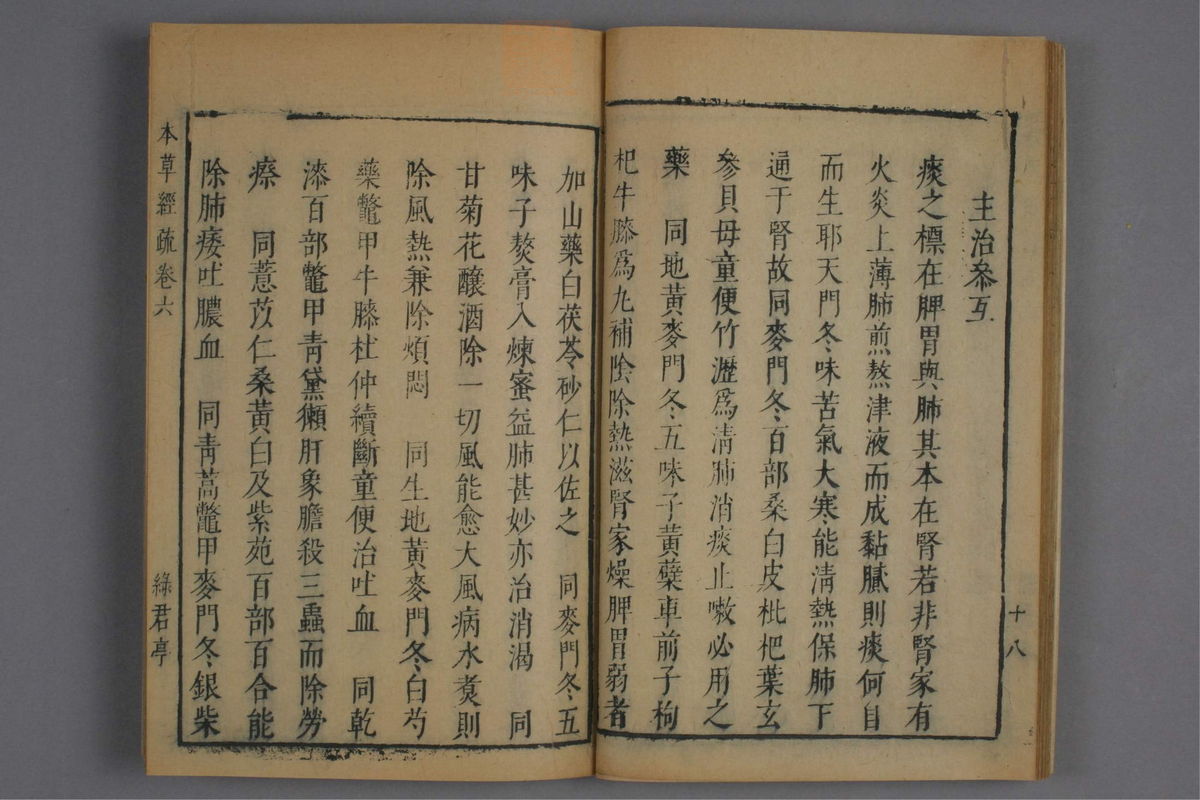 十八
主治參互
痰之標在脾胃與肺其本在腎若非腎家有
火炎上薄肺煎熬津液而成黏膩則痰何自
而生耶天門冬味苦氣大寒能清熱保肺下
通于腎故同麥門冬百部桑白皮枇杷葉玄
參貝母童便竹瀝爲清肺消痰止嗽必用之
藥　同地黃麥門冬五味子黃蘗車前子枸
杞牛膝爲丸補陰除熱滋腎家燥脾胃弱者
加山藥白茯苓砂仁以佐之　同麥門冬五
味子熬膏入煉蜜益肺甚妙亦治消渴　同
甘菊花釀酒除一切風能愈大風病水煑則
除風熱兼除煩悶　同生地黃麥門冬白芍
藥鼈甲牛膝杜仲續斷童便治吐血　同乾
漆百部鼈甲靑黛獺肝象膽殺三蟲而除勞
瘵　同薏苡仁桑黃白及紫菀百部百合能
除肺痿吐膿血　同靑蒿鼈甲麥門冬銀柴
本草經疏卷六
綠君亭